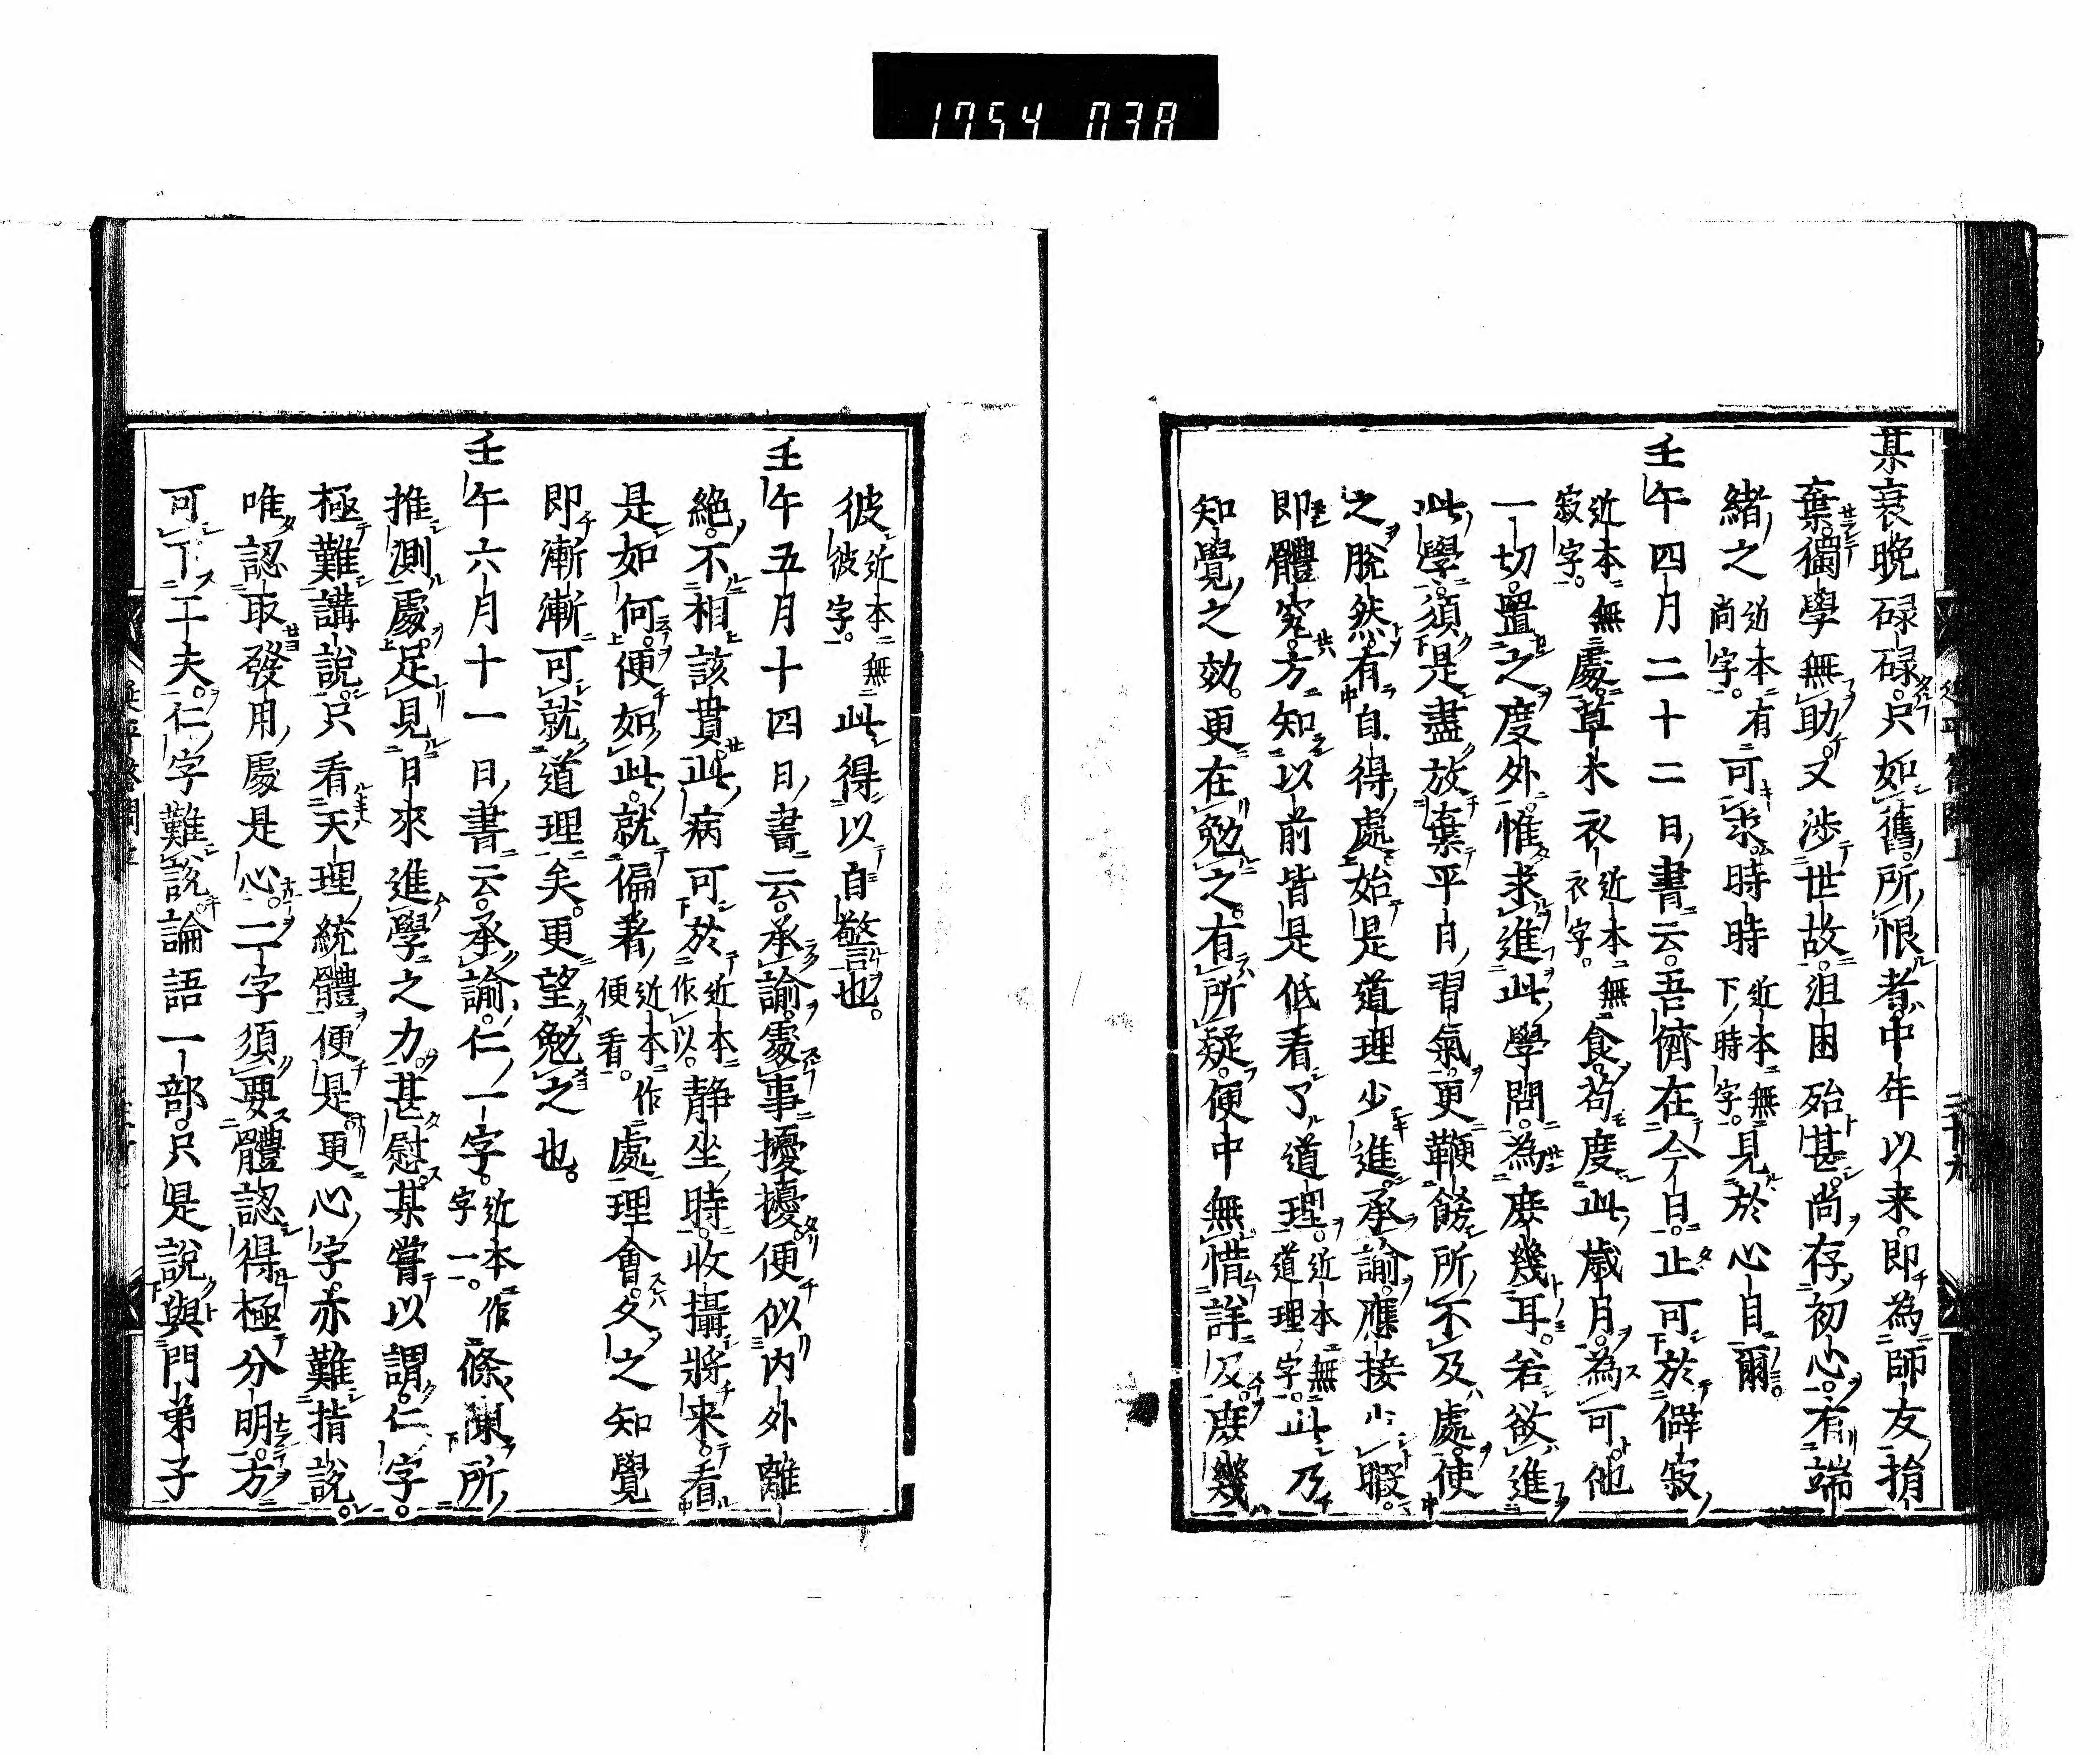 1754 038
某衰晚碌碌只如舊所恨者中年以来即為師友捐
棄獨學無助又渉世故沮困殆甚尚存初心有端
緒之近本有尚字可求時時近本無下時字見於心目爾
壬午四月二十二日書云吾儕在今日止可於僻寂
近本無寂字處草木衣近本無衣字食苟度此歳月為可他
一切置之度外惟求進此學問為庻幾耳若欲進
此學須是盡放棄平日習氣更鞭飭所不及處使
之脫然有自得處始是道理少進承諭應接少暇
即體究方知以前皆是低看了道理近本無道理字此乃
知覺之効更在勉之有所疑便中無惜詳及庻幾
彼近本無彼字此得以自警也
壬午五月十四日書云承諭處事擾擾便似内外離
絶不相該貫此病可於近本作以静坐時收攝將来看
是如何便如此就偏著近本作便看處理會久之知覺
即漸漸可就道理矣更望勉之也
壬午六月十一日書云承諭仁一字近本作字一條陳所
推測處足見日來進學之力甚慰某嘗以謂仁字
極難講說只看天理統體便是更心字亦難指說
唯認取發用處是心二字須要體認得極分明方
可下工夫仁字難說論語一部只是說與門弟子